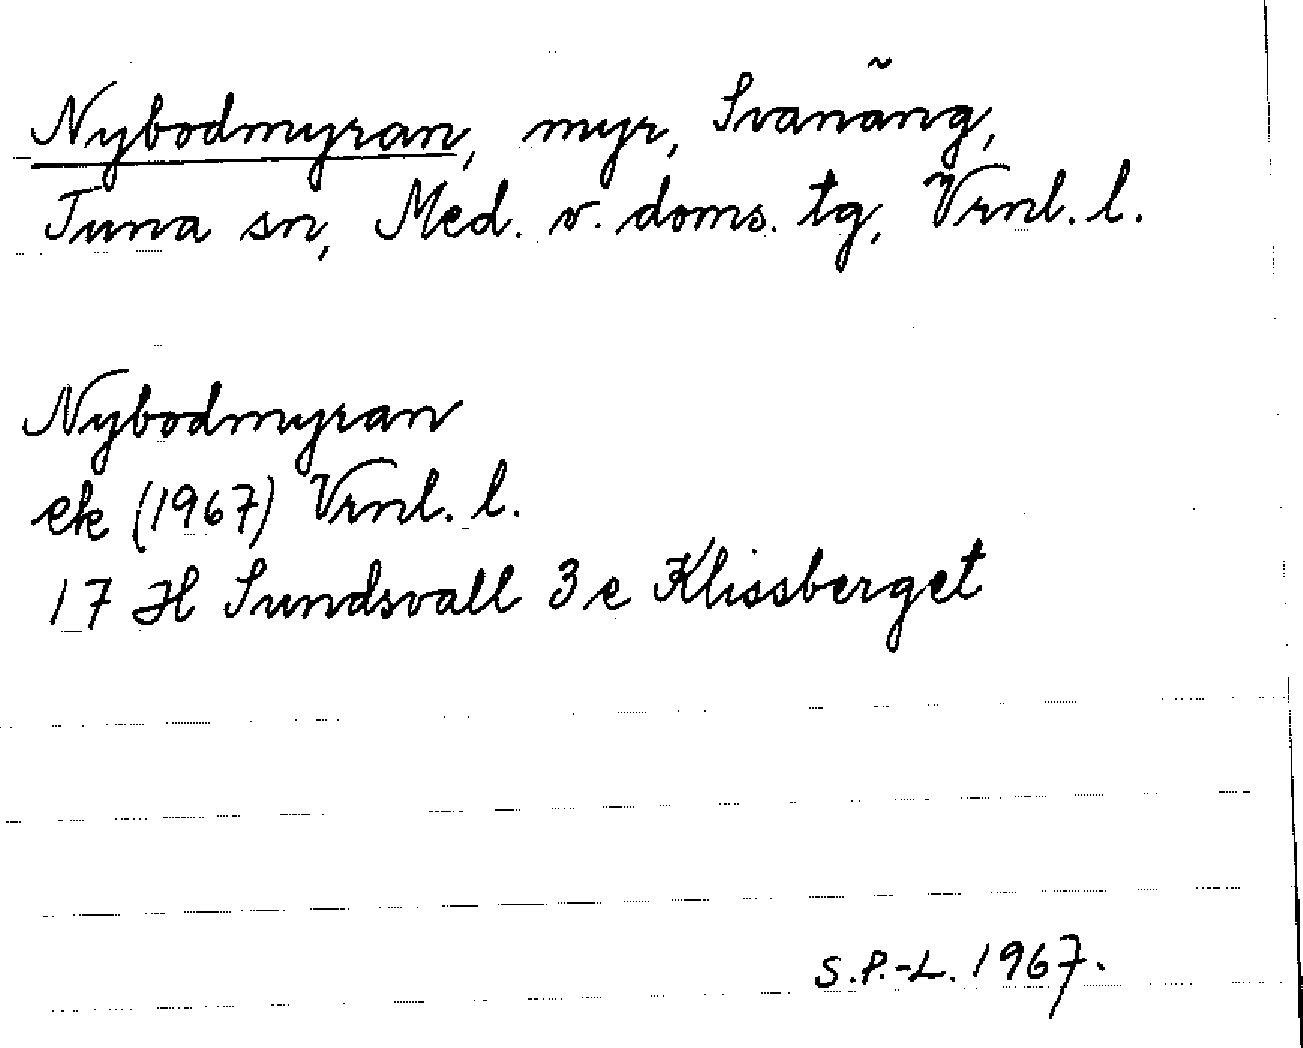 Nybodmyran, myr, Svanäng,
Tuna sn, Med. v. doms. tg, Vrnl. l.
Nybodmyran
ek (1967) Vrnl. l.
17 H Sundsvall 3 e Klissberget
S.P.-L. 1967.